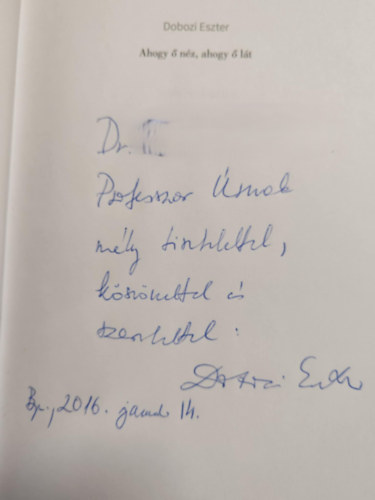 Dobozi Eszter
Ahogy ő néz, ahogy ő lát
Dr.
Professzor Úrnak
mély tisztelettel,
köszönettel és
szeretettel:
Dobozi Eszter
Bp., 2016. január 14.